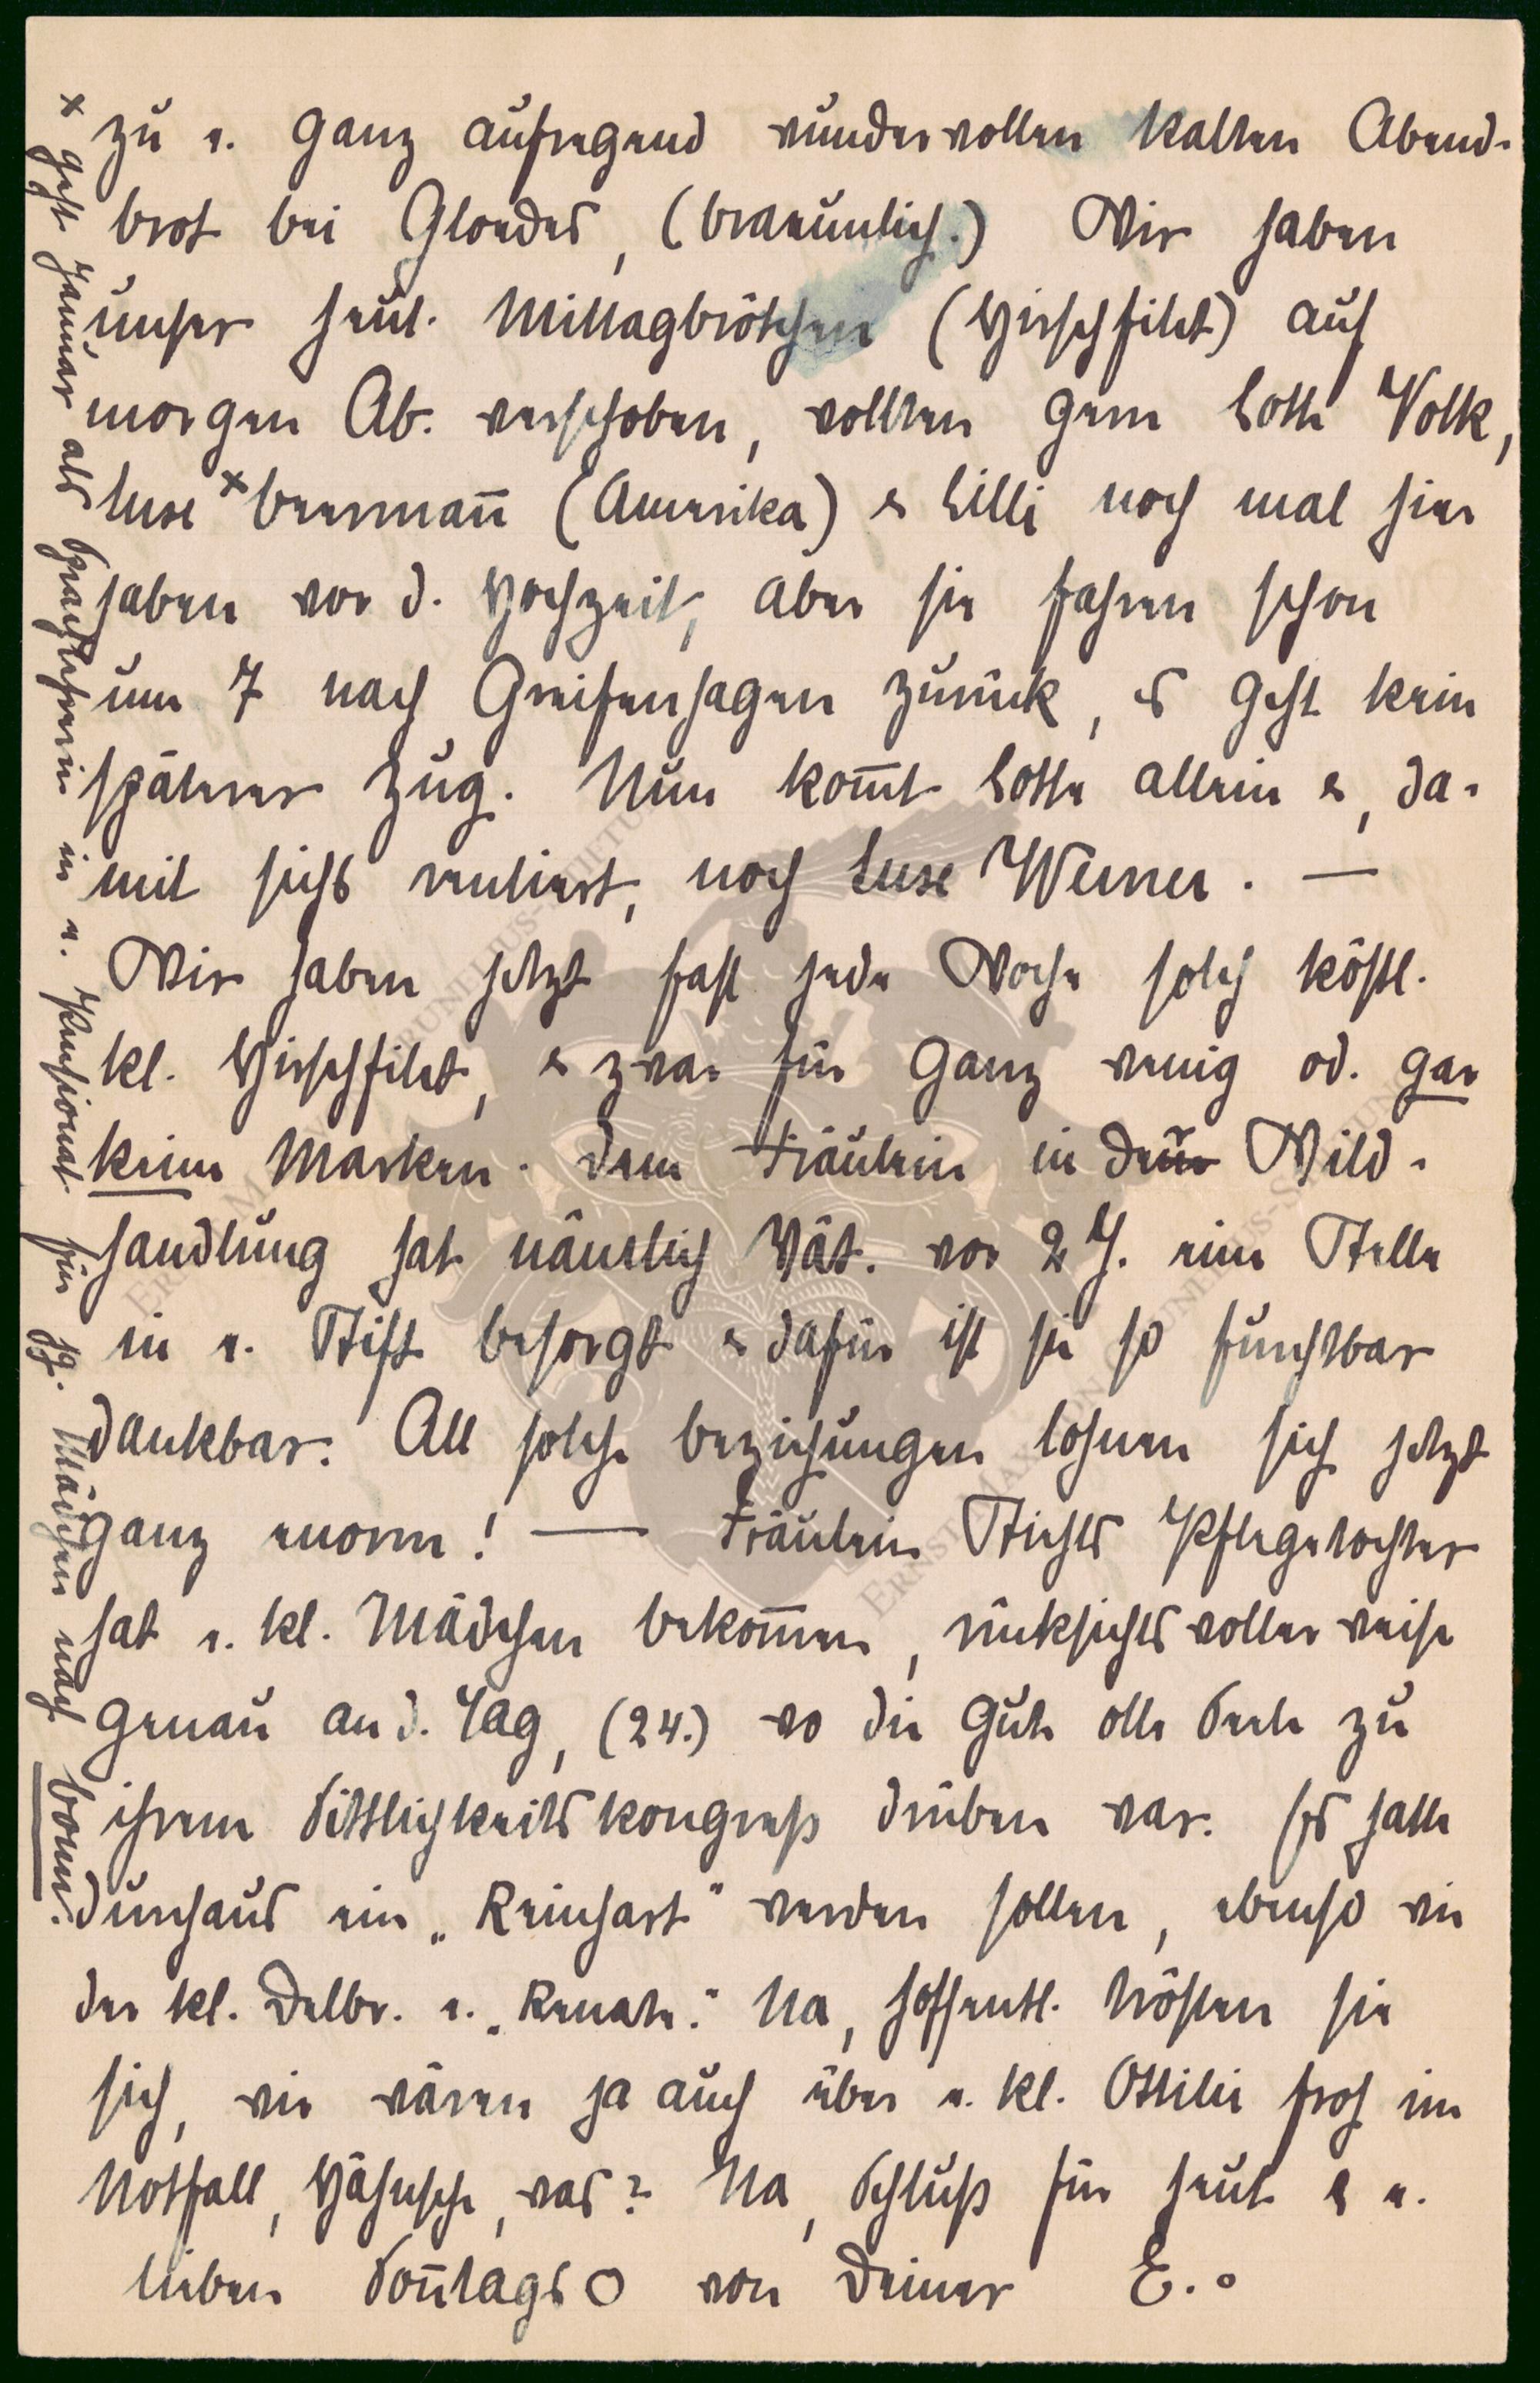 zu e. ganz aufregend wundervollen kalten Abend-
brot bei Gloedes, (bräunlich.) Wir haben
unser heut. Mittagbrötchen (Hirschfilet) auf
morgen Ab. verschoben, wollten gern Lotte Volk,
Luse × Beermann̄ (Amerika) & Lilli noch mal hier
haben vor d. Hochzeit, aber sie fahren schon
um 7 nach Greifenhagen zurück, es geht kein
späterer Zug. Nun kom̄t Lotte allein &, da-
mit sichs rentiert, noch Luse Werner. —
Wir haben jetzt fast jede Woche solch köstl.
kl. Hirschfilet, & zwar für ganz wenig od. gar
keine Marken. Dem Fräulein in der Wild-
handlung hat nämlich Vät. vor 2 J. eine Stelle
in e. Stift besorgt & dafür ist sie so furchtbar
dankbar. All solche Beziehungen lohnen sich jetzt
ganz enorm! — Fräulein Stichts Pflegetochter
hat e. kl. Mädchen bekom̄en, rücksichtsvoller weise
genau an d. Tag, (24.) wo die gute olle Seele zu
ihrem Sittlichkeitskongreß drüben war. Es hatte
durchaus ein „Reinhart" werden sollen, ebenso wie
der kl. Delbr. e. „Renate." Na, hoffentl. trösten sie
sich, wir wären ja auch über e. kl. Ottilie froh im
Notfall, Hähnsche, was? Na, Schluß für heut & e.
lieben Son̄tags O von Deiner E.
× geht Januar als Sprachlehrerin in e. Pensionat für jg. Mädchen nach Bonn.
ERNST-MAX-VON-GRUNELIUS-STIFTUNG